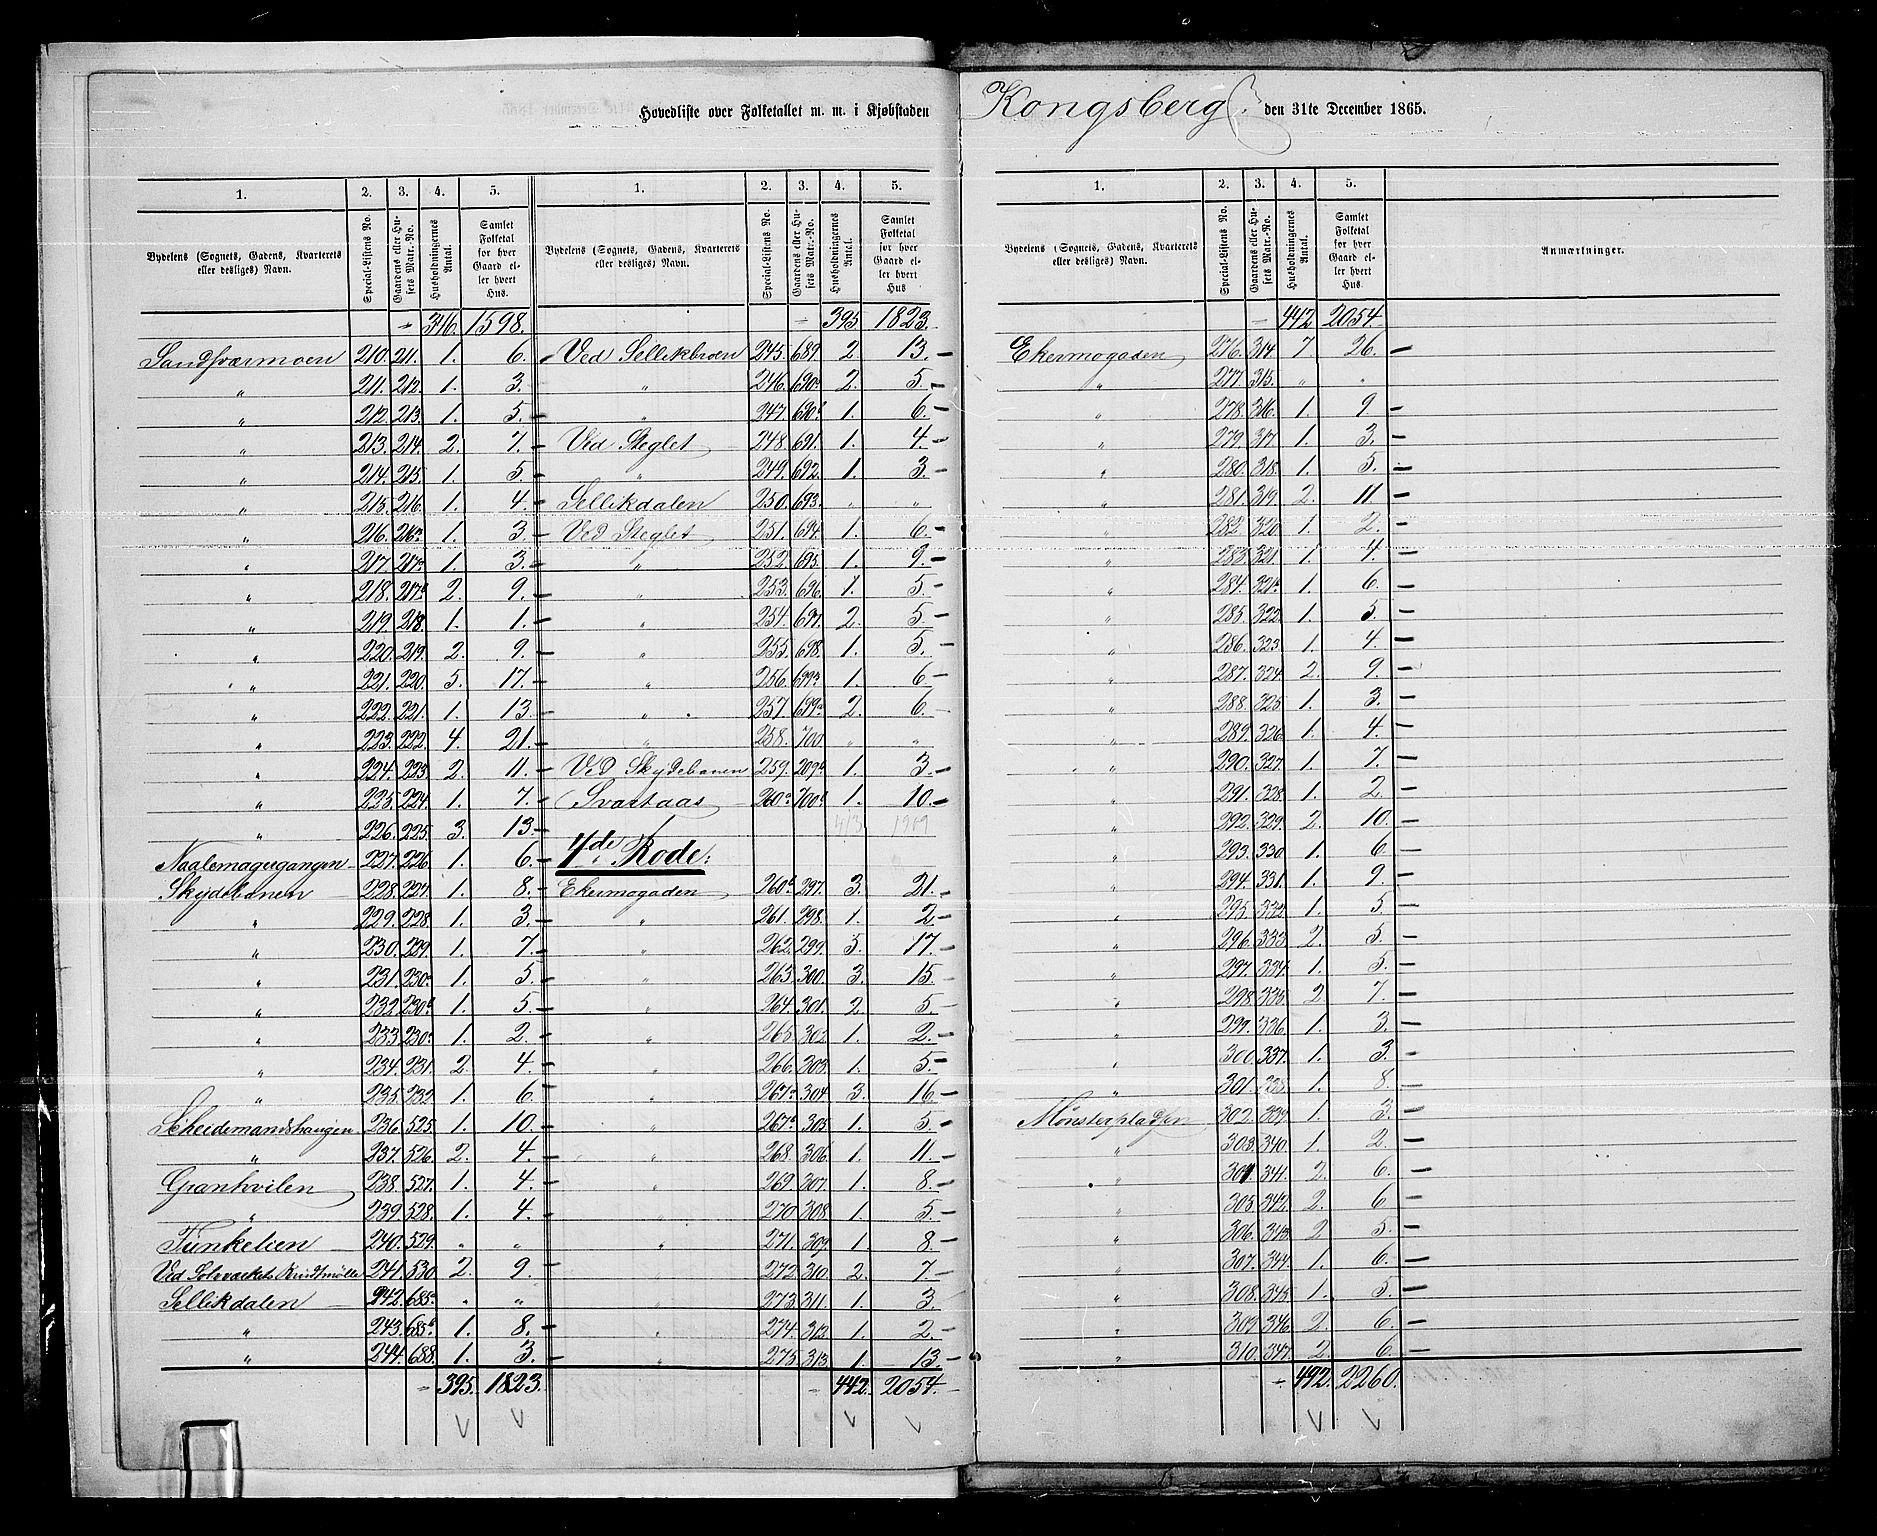 Hovedliste over Folketallet m. m. i Kjøbstaden Kongsberg, den 31te December 1865.
1. 2. 3. 4. 5.
Bydelens (Sognets, Gadens, Kvarterets eller desliges) Navn. Special-Listens No. Gaardens eller Husets Matr.-No. Husholdningernes Antal. Samlet Folketal for hver Gaard eller hvert Hus.
346. 1598.
Sandsværmoen 210. 211. 1. 6.
" 211. 212. 1. 3.
" 212. 213. 1. 5.
" 213. 214. 2. 7.
" 214. 215. 1. 5.
" 215. 216. 1. 4.
" 216. 1. 3.
" 217. 1. 3.
" 218. 2. 9.
" 219. 218. 1. 1.
" 220. 219. 2. 9.
" 221. 220. 5. 17.
" 222. 221. 1. 13.
" 223. 222. 4. 21.
" 224. 223. 2. 11.
" 225. 224. 1. 7.
" 226. 225. 3. 13.
Naalemagergangen 227. 226. 1. 6.
Skydebanen 228. 227. 1. 8.
" 229. 228. 1. 3.
" 230. 229. 1. 7.
" 231. 230a 1. 5.
" 232. 230b 1. 5.
" 233. 1. 2.
" 234. 231. 2. 4.
" 235. 232. 1. 6
Scheidemandshaugen 236. 525. 1. 10.
" 237. 526. 2. 4.
Granhvilen 238. 527. 1. 4.
" 239. 528. 1. 4.
Funkelien 240. 529. " "
Ved Sølvværkets Krudtmølle 241. 530. 2. 9.
Sellikdalen 242. 685a " "
" 243. 685b 1. 8.
" 244. 688. 1. 3.
395. 1823.
1. 2. 3. 4. 5.
Bydelens (Sognets, Gadens, Kvarterets eller desliges) Navn. Special-Listens No. Gaardens eller Husets Matr.-No. Husholdningernes Antal. Samlet Folketal for hver Gaard eller hvert Hus
395 1823.
Ved Sellikbroen 245. 689. 2. 13.
" 246. 690a 2. 5.
" 247. 690b 1. 6.
Ved Steglet 248. 691. 1. 4.
" 249. 692. 1. 3.
Sellikdalen 250. 693. " "
Ved Steglet 251. 694. 1. 6.
" 252. 695. 1. 9.
" 253. 696. 1. 5.
" 254. 697. 2. 5.
" 255. 698. 1. 5.
" 256. 1. 6
" 257. 2. 6.
" 258. 700 " "
Ved Skydebanen 259. 209b 1. 3.
Svartaas 260a 700b 1. 10.
413 1919
4de Rode:
Ekermogaden 260b 297. 3. 21.
" 261. 298. 1. 2
" 262. 299. 5. 17.
" 263. 300. 3. 15.
" 264. 301. 2. 5.
" 265. 302. 1. 2.
" 266. 303. 1. 5.
" 267a 304. 3. 16
" 267b 305. 1. 5.
" 268. 306. 1. 11.
" 269 307. 1. 8.
" 270 308. 1. 5.
" 271. 309. 1. 8.
" 272. 310. 2. 7.
" 273. 311. 1. 3.
" 274. 312. 1. 2.
" 275. 313. 1. 13.
442. 2054.
1. 2. 3. 4. 5.
Bydelens (Sognets, Gadens, Kvarterets eller desliges) Navn. Special-Listens No. Gaardens eller Husets Matr.-No. Husholdningernes Antal. Samlet Folketal for hver Gaard eller hvert Hus Anmærkninger.
442 2054.
Ekermogaden 276. 314. 7 26.
" 277. 315. " "
" 278. 316. 1. 9
" 279. 317. 1. 3.
" 280. 318. 1. 5.
" 281. 319. 2. 11.
" 282. 320. 1. 2.
" 283. 321. 1. 4
" 284. 321b 1. 6.
" 285. 322. 1. 5.
" 286. 323 1. 4.
" 287. 324. 2. 9.
" 288. 325 1. 3.
" 289. 326. 1. 4.
" 290. 327. 1. 7.
" 291. 328. 1. 2.
" 292. 329. 2. 10.
" 293. 330. 1. 6
" 294. 331. 1. 9.
" 295. 332. 1. 5.
" 296. 333. 2. 5.
" 297. 334. 1. 5.
" 298. 335. 2 7.
" 299. 336. 1. 3.
" 300. 337. 1. 3.
" 301. 338. 1. 8.
Mønsterpladsen 302. 339. 1. 3.
" 303. 340. 1. 2.
" 304. 341. 2. 6.
" 305. 342. 2. 6
" 306. 343. 2 5.
" 307. 344. 1. 6.
" 308. 345. 1. 5.
" 309. 346. 2. 6.
" 310. 347. 2. 6.
492. 2260.